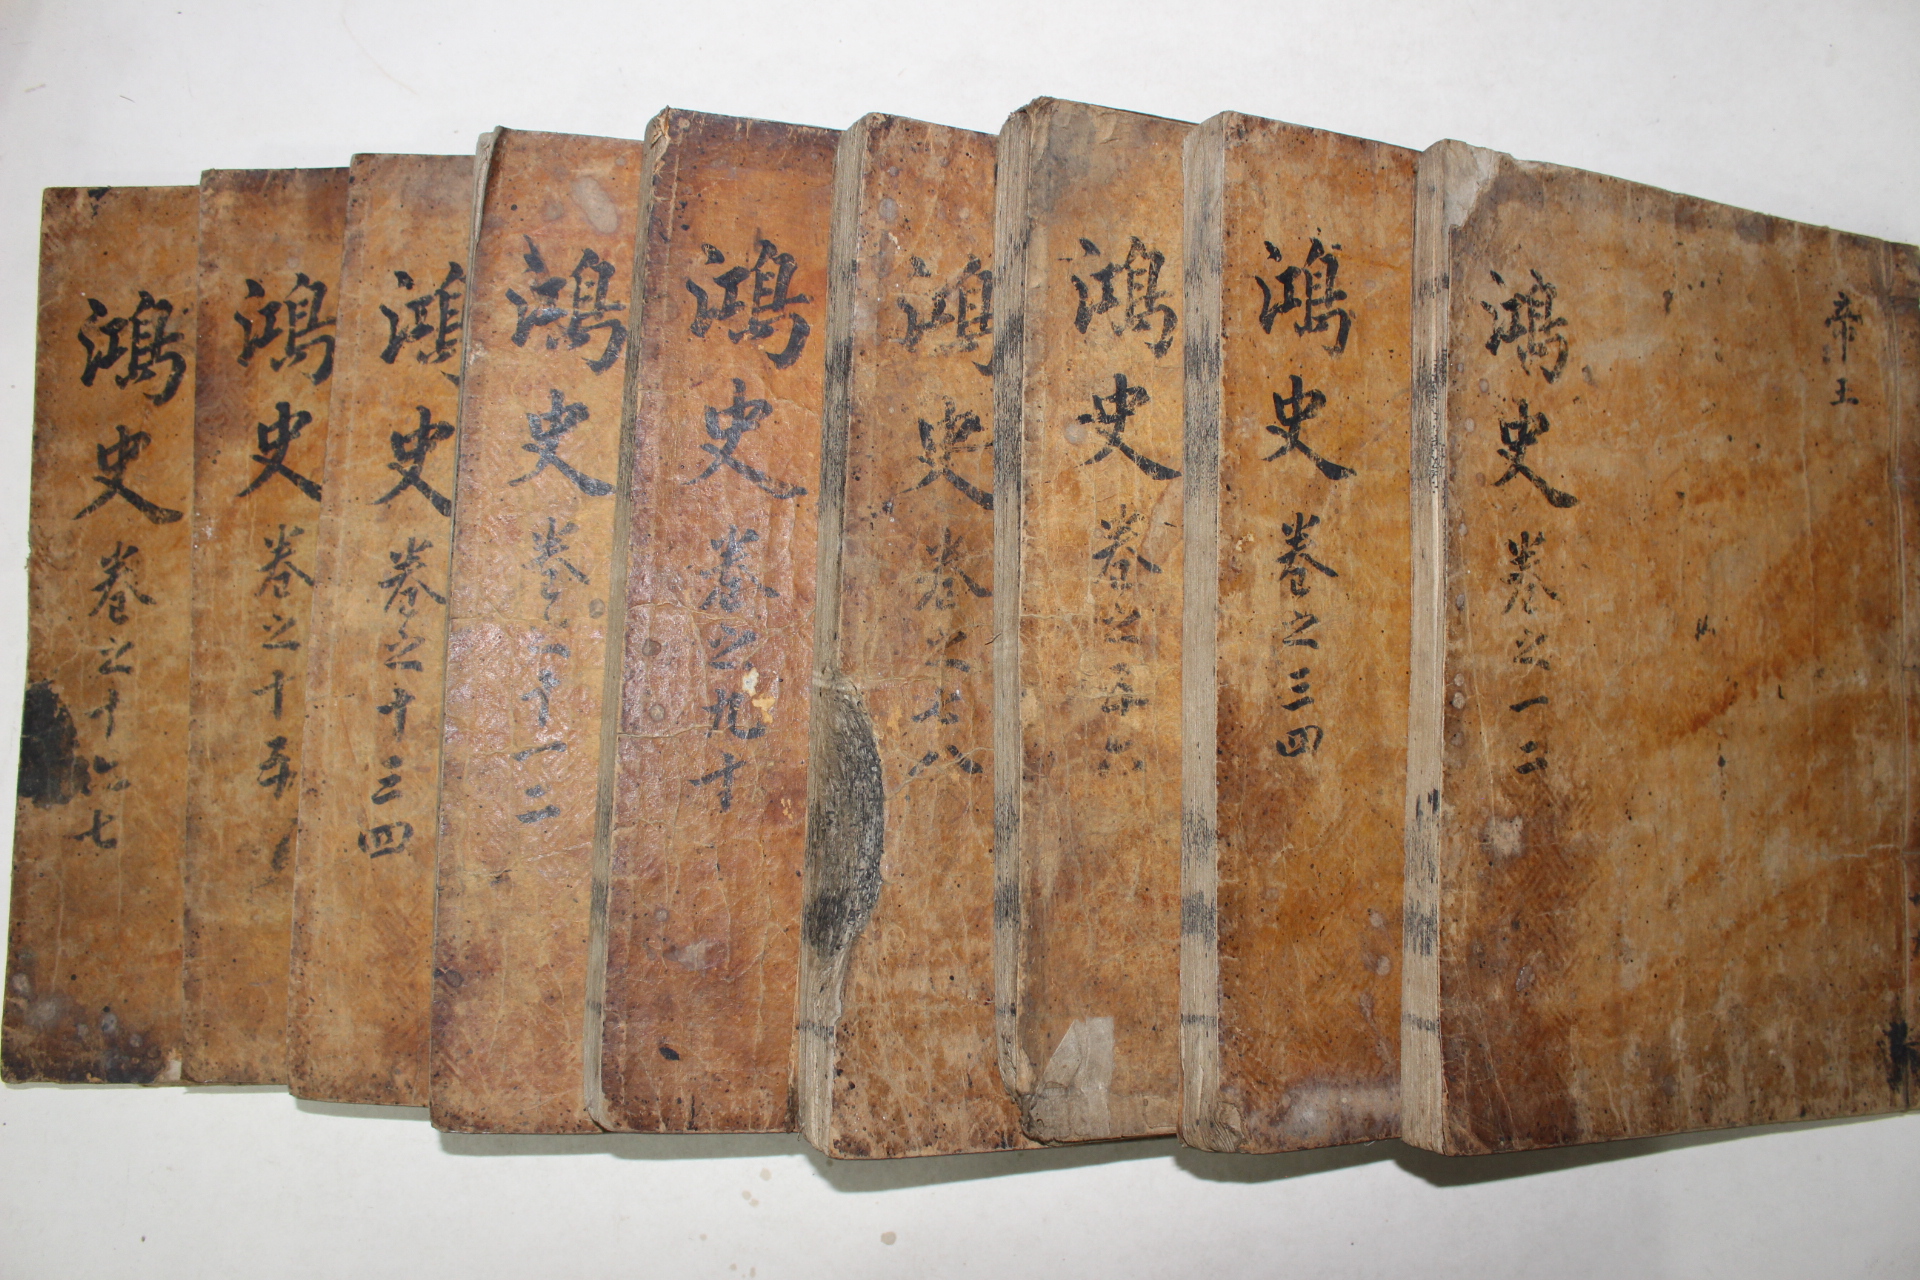 帝王
鴻史 卷之一二
鴻史 卷之三四
鴻史 卷之五六
鴻史 卷之七八
鴻史 卷之九十
鴻史 卷之十一二
鴻史 卷之十三四
鴻史 卷之十五
鴻史 卷之十六七